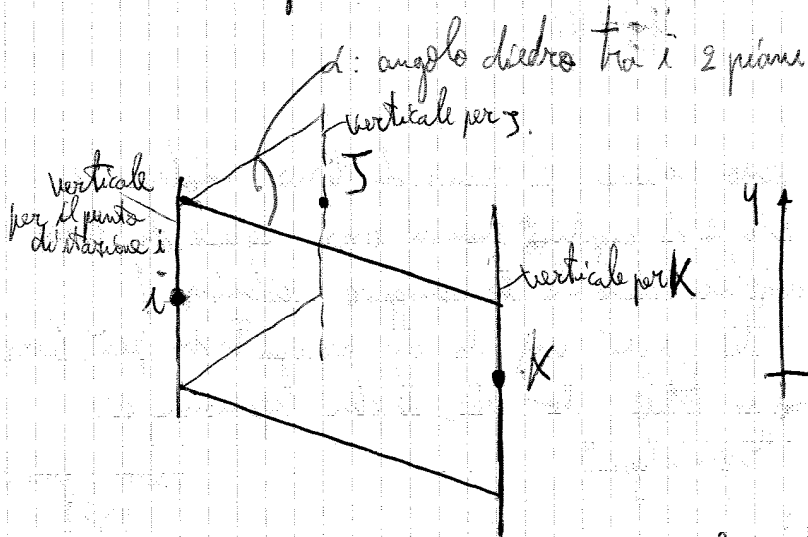 α: angolo diedro tra i 2 piani
verticale per J.
J
verticale
per il punto
di stazione i
i
verticale per K
K
y